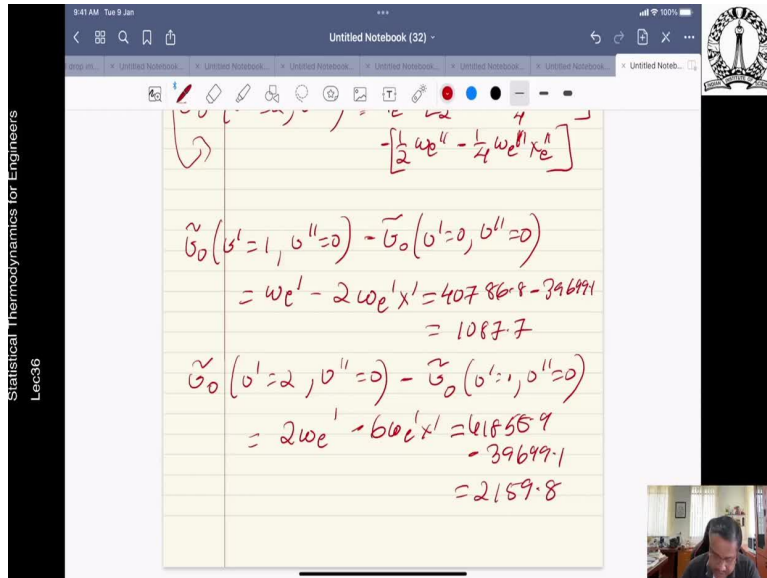 9:41 AM Tue 9 Jan
100%
Untitled Notebook (32)
drop im...
× Untitled Notebook...
× Untitled Notebook...
× Untitled Notebook...
× Untitled Notebook...
× Untitled Notebook...
× Untitled Notebook...
× Untitled Noteb...
Statistical Thermodynamics for Engineers
Lec36
-[1/2 ωe'' - 1/4 ωe'' xe'']
ῡ₀(υ'=1, υ''=0) - ῡ₀(υ'=0, υ''=0)
= ωe' - 2ωe'x' = 40786.8 - 39699.1
= 1087.7
ῡ₀(υ'=2, υ''=0) - ῡ₀(υ'=0, υ''=0)
= 2ωe' - 6ωe'x' = 41858.9
- 39699.1
= 2159.8